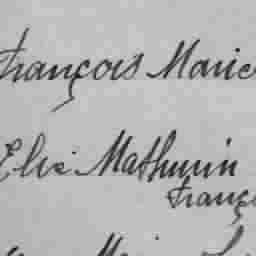 François Marie
Elie Mathurin
Franç